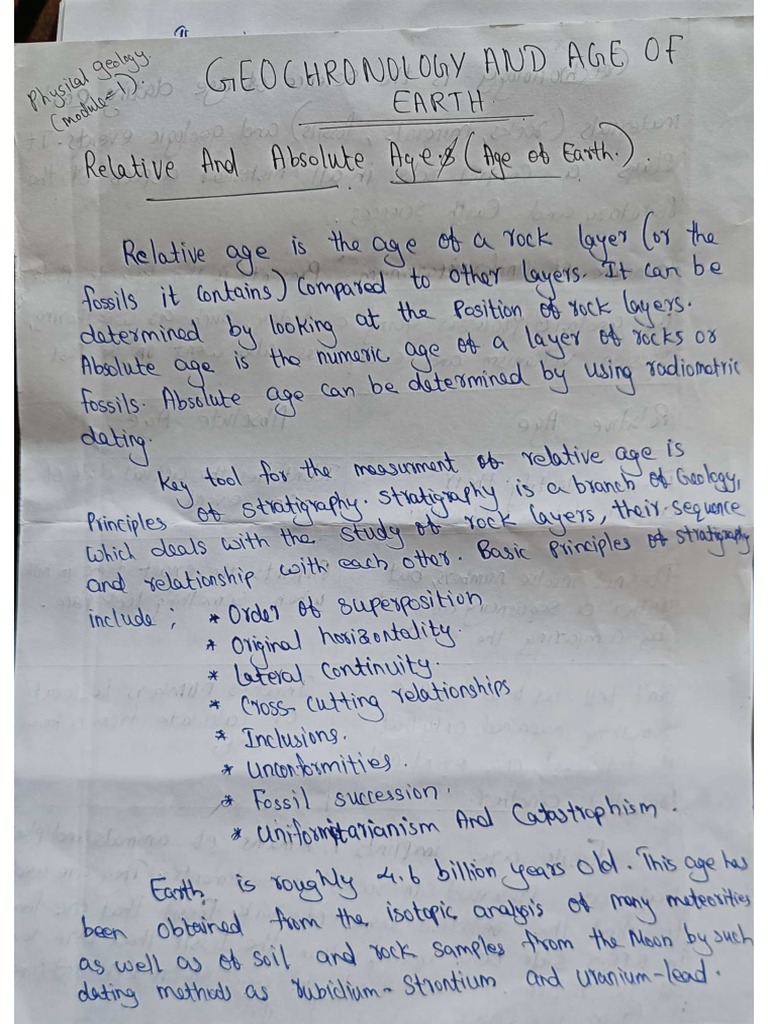 Physical geology
(module-1).
GEOCHRONOLOGY AND AGE OF
EARTH
Relative And Absolute Ages (Age of Earth.).
Relative age is the age of a rock layer (or the
fossils it contains) compared to other layers. It can be
determined by looking at the position of rock layers.
Absolute age is the numeric age of a layer of rocks or
fossils. Absolute age can be determined by using radiometric
dating.
Key tool for the measurment of relative age is
Principles of stratigraphy. stratigraphy is a branch of Geology,
which deals with the study of rock layers, their sequence
and relationship with each other. Basic principles of stratigraphy
include,
* Order of superposition
* Original horizontality.
* Lateral continuity.
* Cross-cutting relationships
* Inclusions.
* Unconformities.
* Fossil succession.
* Uniformitarianism And Catastrophism.
Earth is roughly 4.6 billion years old. This age has
been obtained from the isotopic analysis of many meteorities
as well as of soil and rock samples from the Moon by such
dating methods as rubidium-strontium and uranium-lead.